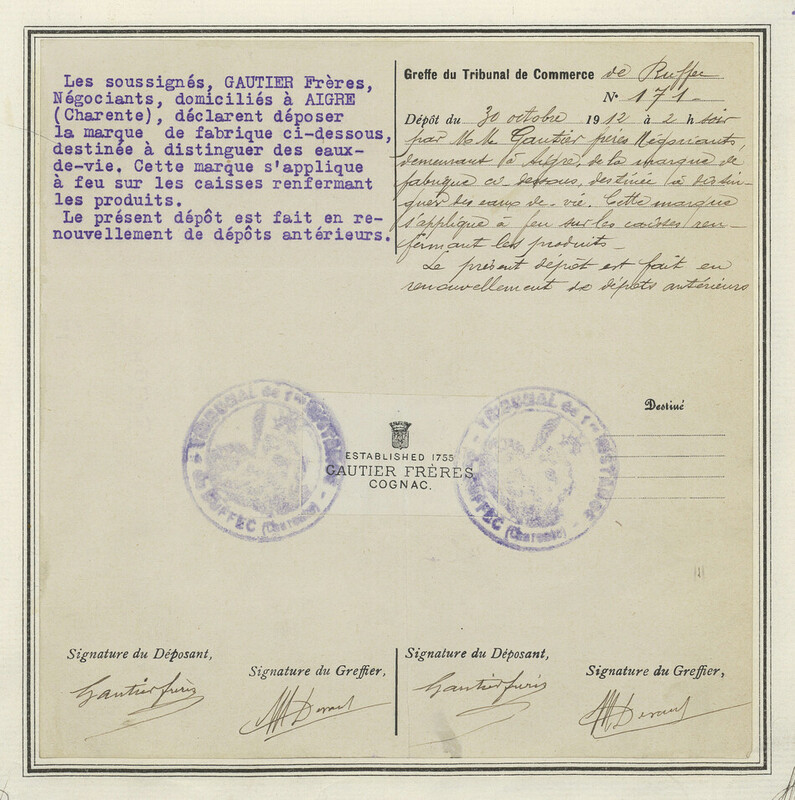 Les soussignés, GAUTIER Frères,
Négociants, domiciliés à AIGRE
(Charente), déclarent déposer
la marque de fabrique ci-dessous,
destinée à distinguer des eaux-
de-vie. Cette marque s'applique
à feu sur les caisses renfermant
les produits.
Le présent dépôt est fait en re-
nouvellement de dépôts antérieurs.
Greffe du Tribunal de Commerce de Ruffec
N° 171
Dépôt du 30 octobre 1912 à 2 h soir
par M.M. Gautier frères Négociants,
demeurant à Aigre, de la marque de
fabrique ci dessous, destinée à distin-
guer des eaux-de-vie. Cette marque
s'applique à feu sur les caisses ren-
fermant les produits-
Le présent dépôt est fait en
renouvellement de dépôts antérieurs
TRIBUNAL de 1re INSTANCE
de RUFFEC (Charente)
ESTABLISHED 1755
GAUTIER FRÈRES
COGNAC.
TRIBUNAL de 1re INSTANCE
de RUFFEC (Charente)
Destiné
Signature du Déposant,
Signature du Greffier,
Gautier frères
Signature du Déposant,
Signature du Greffier,
Gautier frères